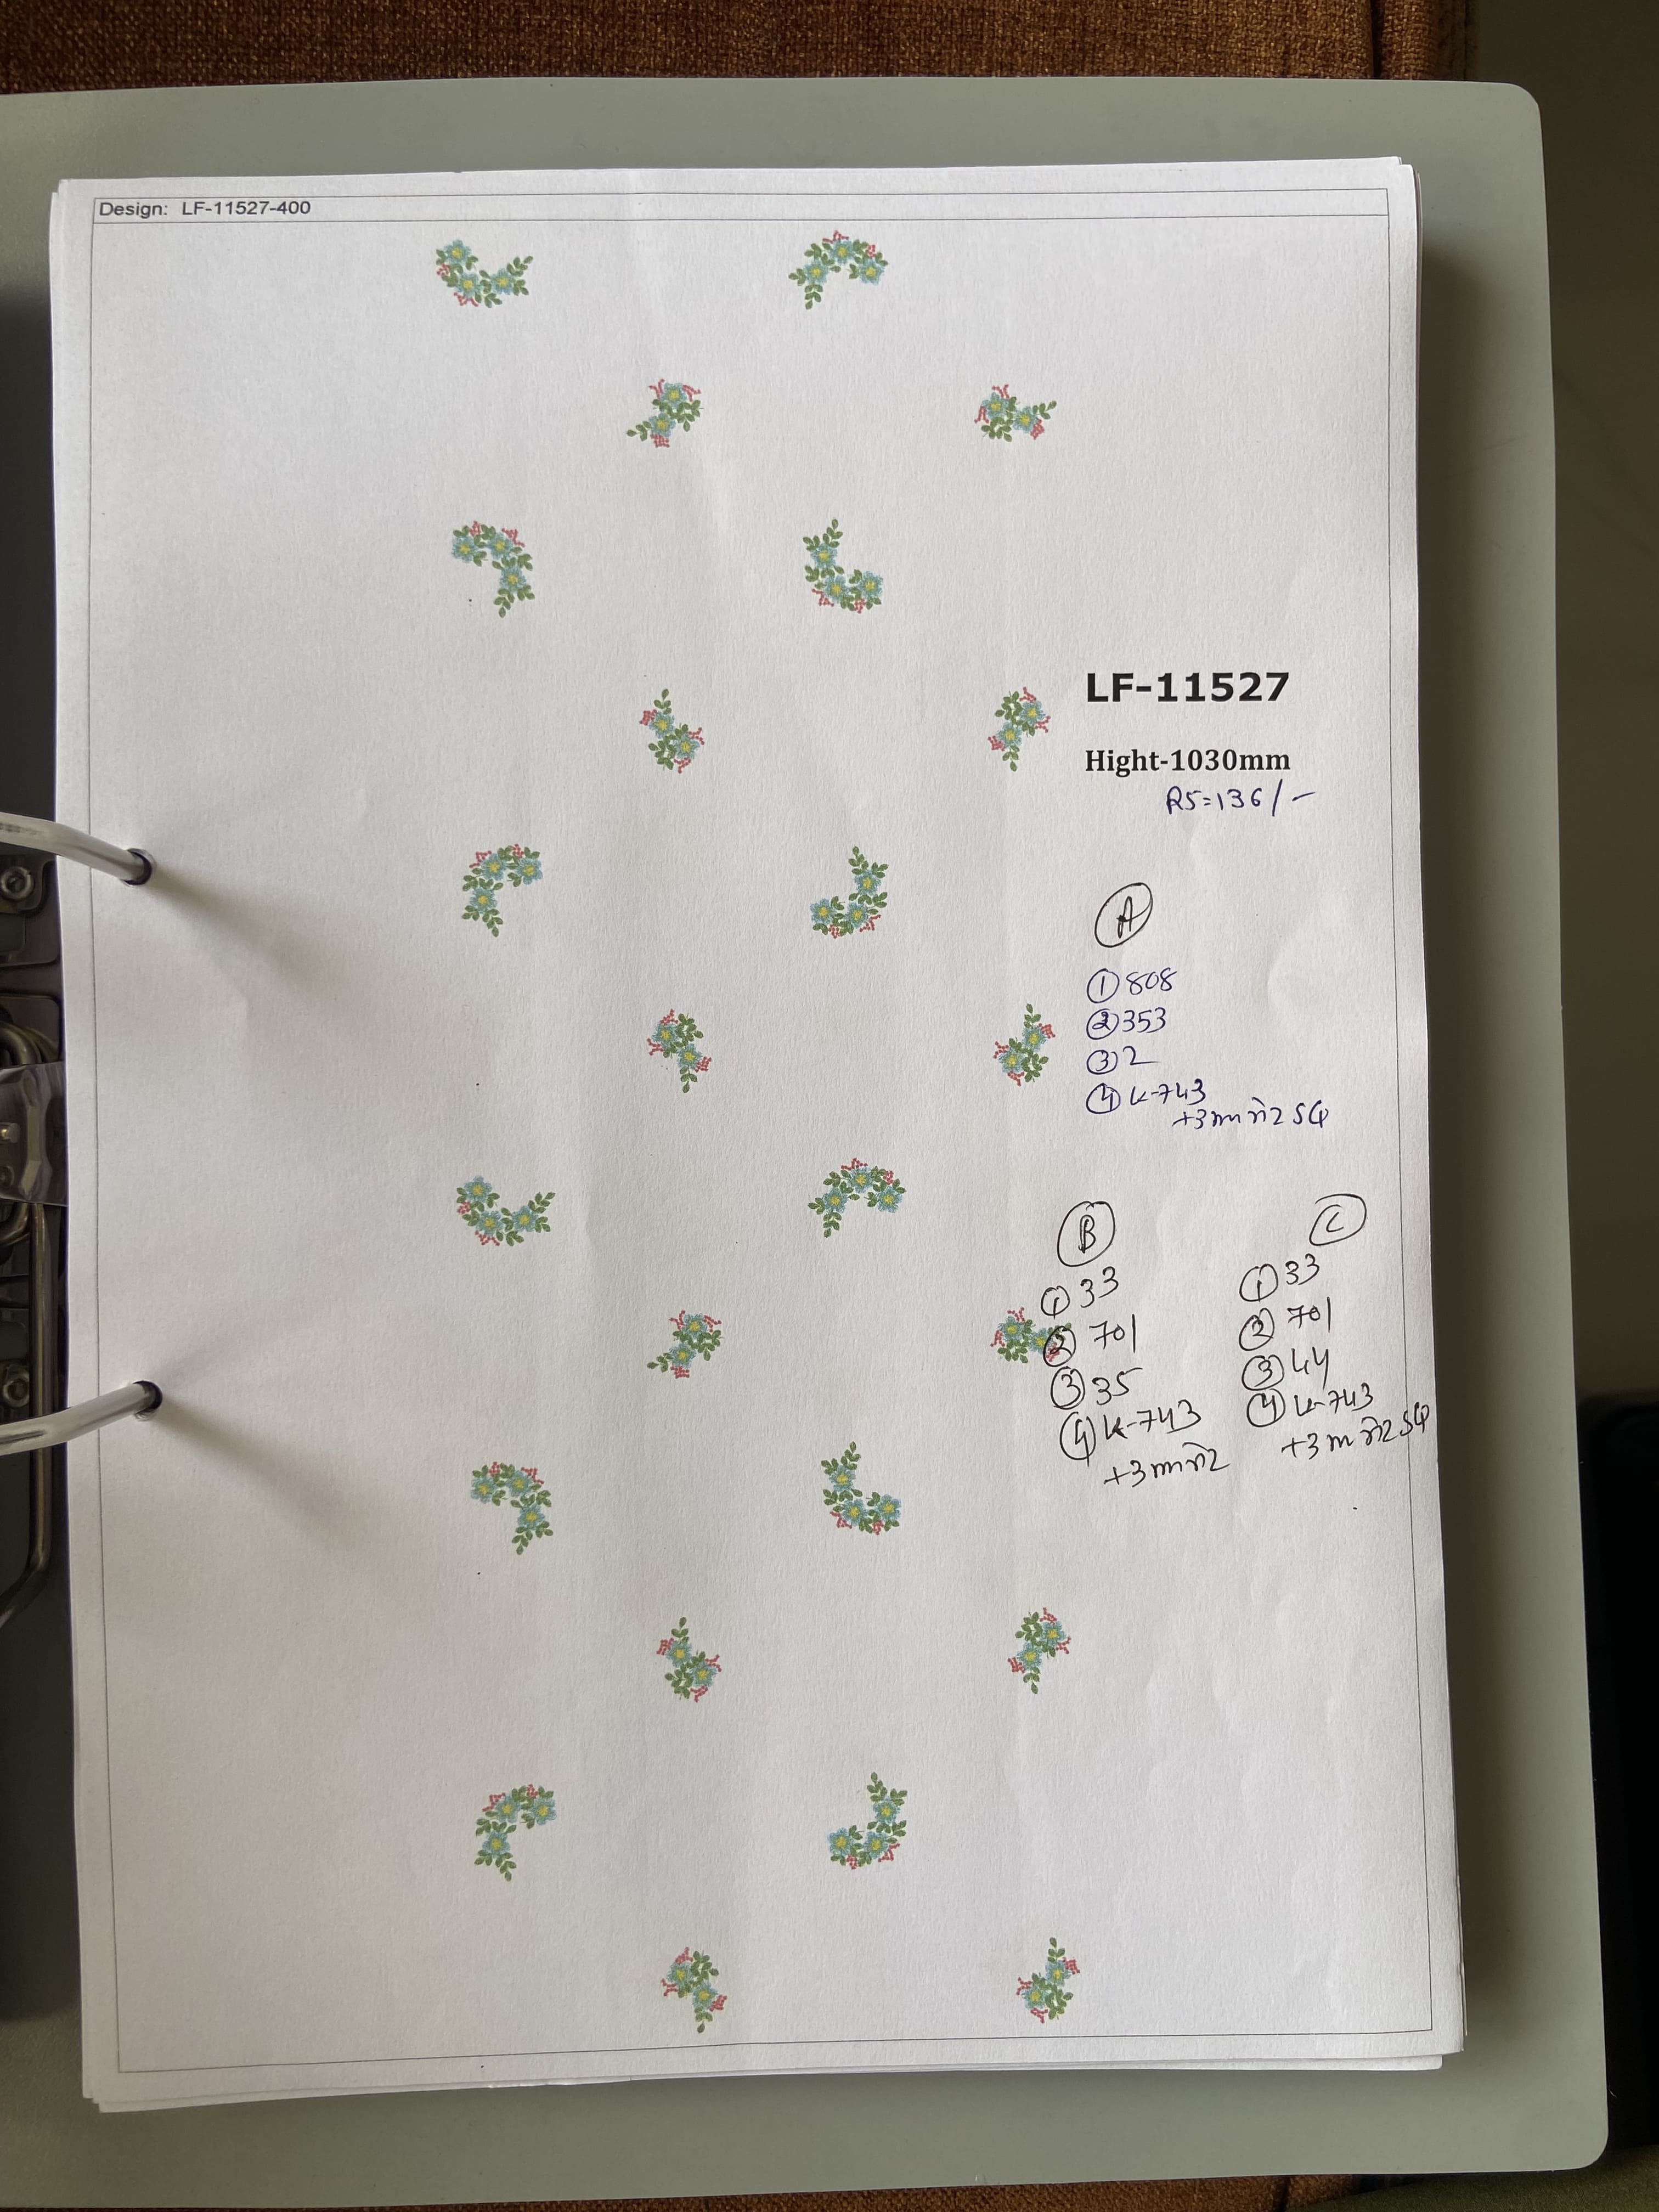 Design: LF-11527-400
LF-11527
Hight-1030mm
RS=136/-
A
① 808
② 353
③ 2
④ K-743
+3mm
B
① 33
② 701
③ 35
④ K-743
+3mm
C
① 33
② 701
③ 44
④ K-743
+3m